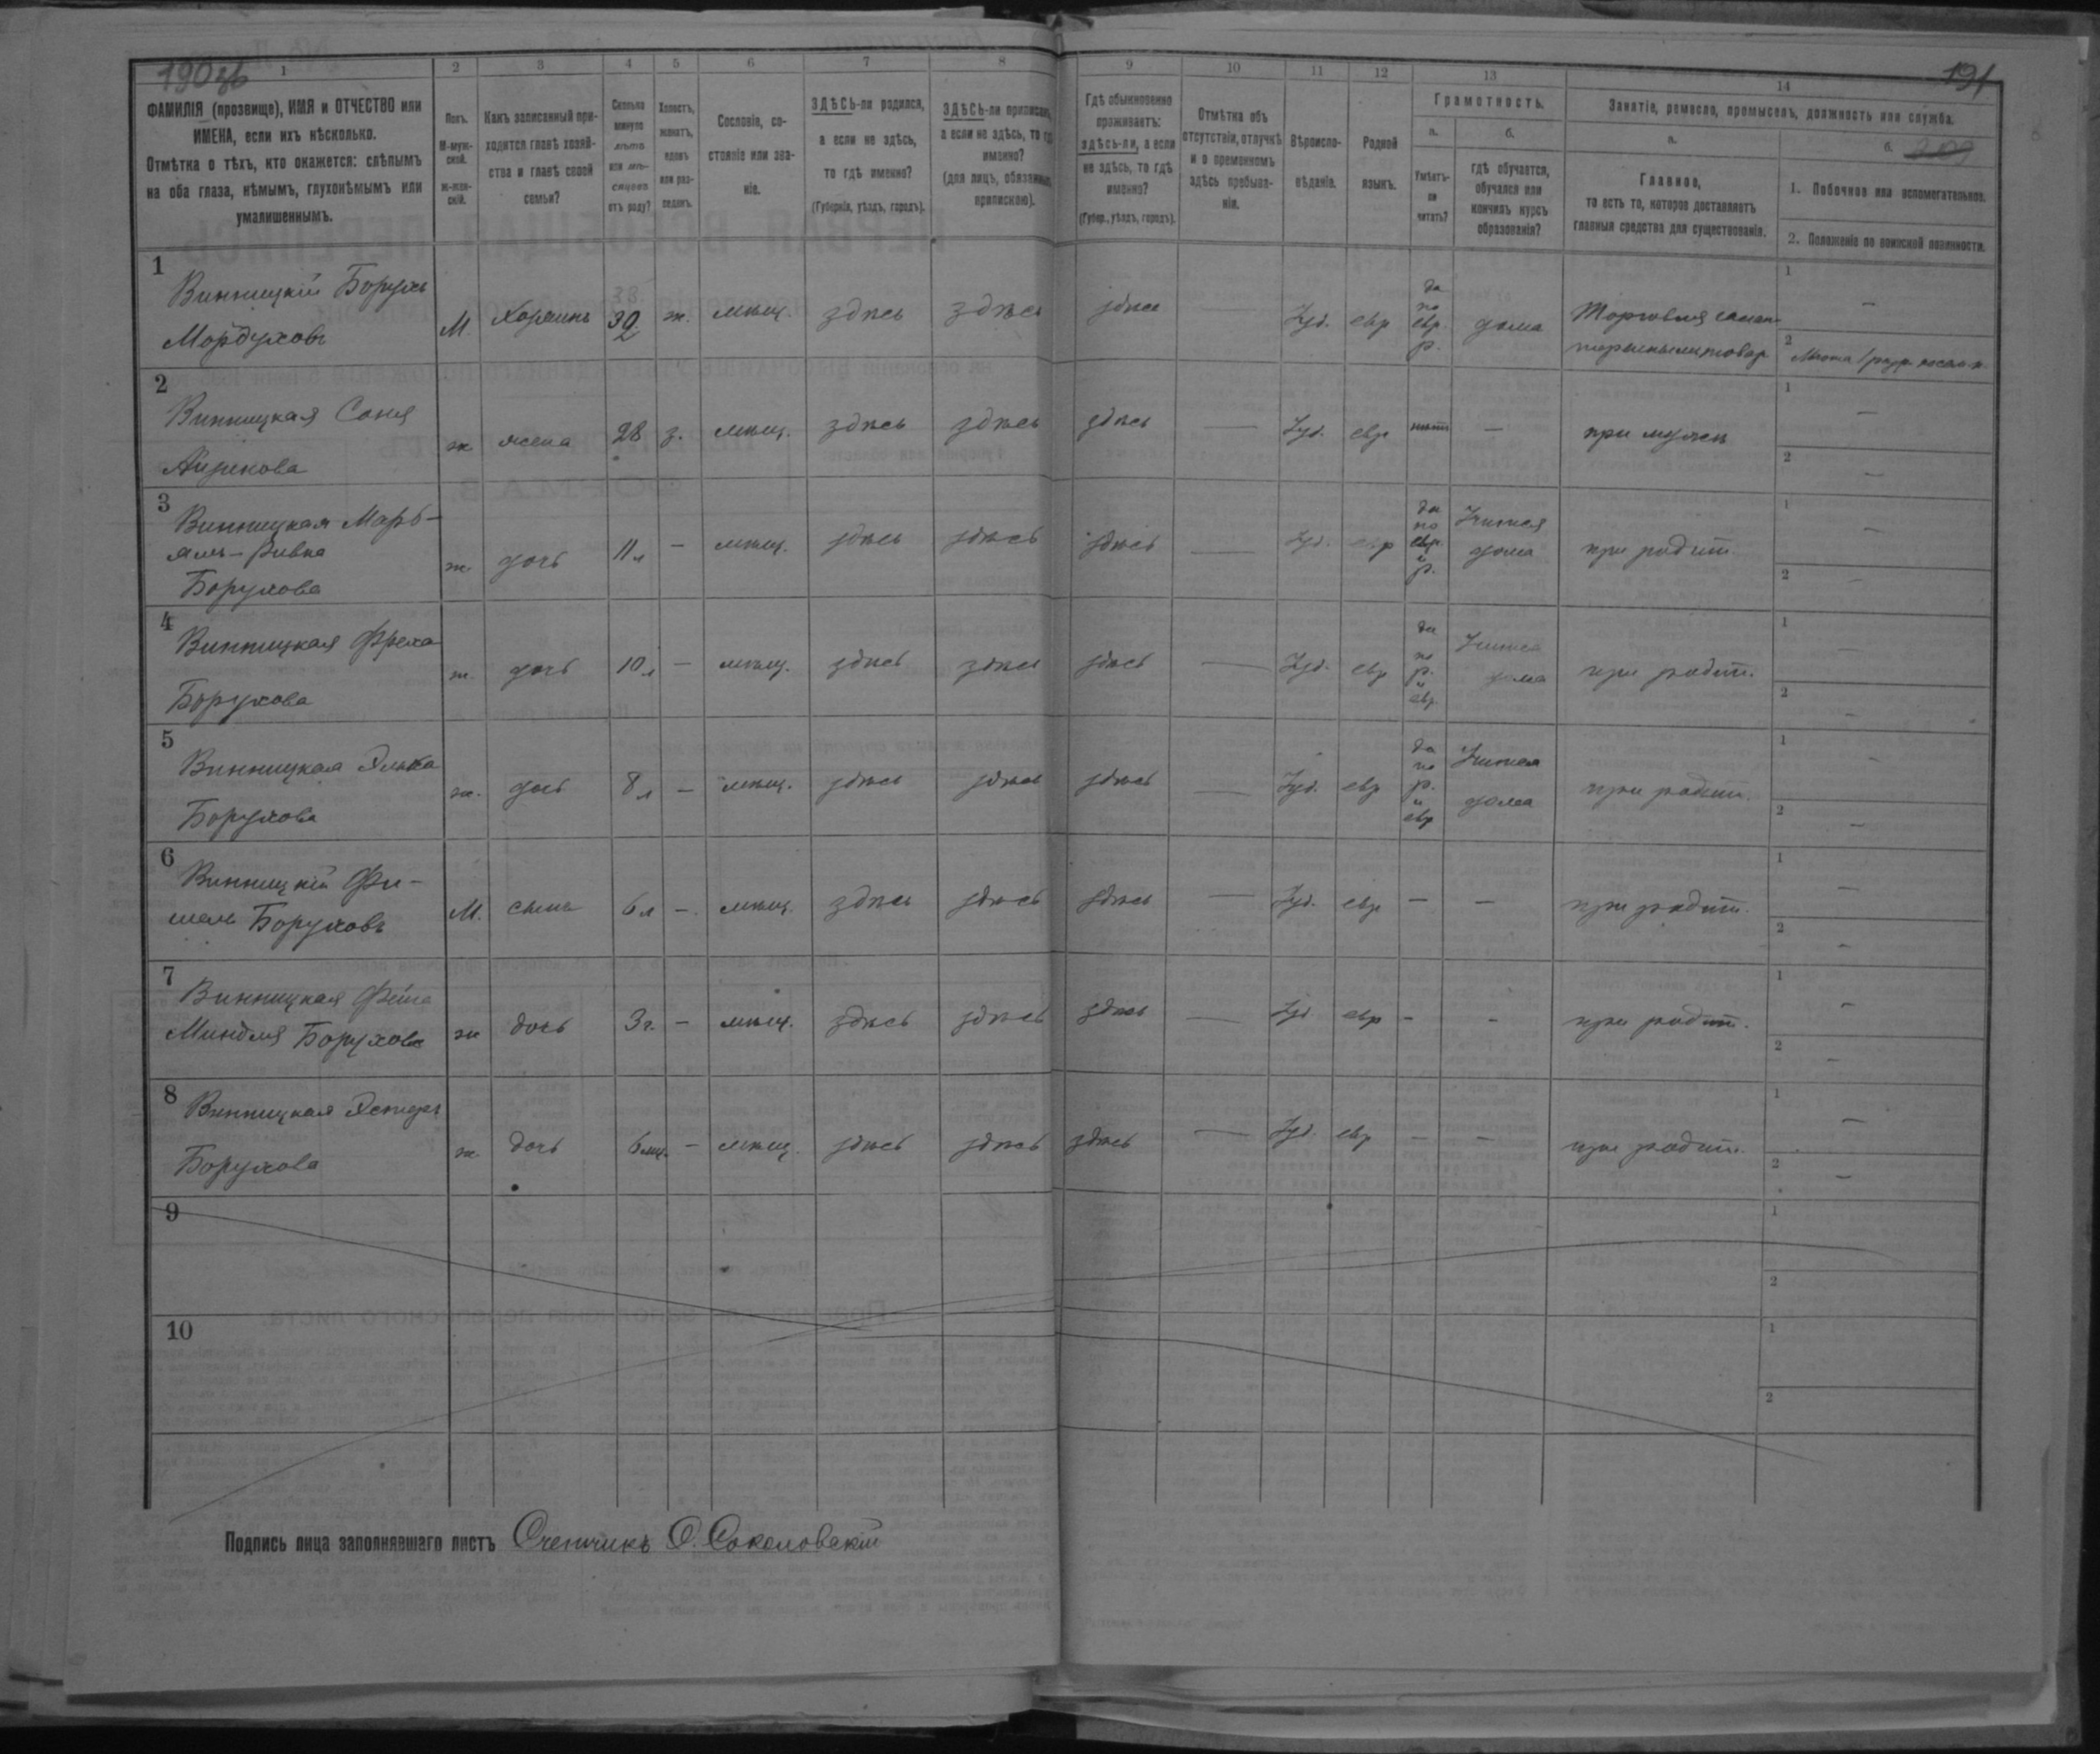 190об
191
1 2 3 4 5 6 7 8 9 10 11 12 13 14
ФАМИЛІЯ (прозвище), ИМЯ и ОТЧЕСТВО или
ИМЕНА, если ихъ нѣсколько.
Отмѣтка о тѣхъ, кто окажется: слѣпымъ
на оба глаза, нѣмымъ, глухонѣмымъ или
умалишеннымъ.
Полъ.
М-муж-
ской.
Ж-жен-
скій.
Какъ записанный при-
ходится главѣ хозяй-
ства и главѣ своей
семьи?
Сколько
минуло
лѣтъ
или мѣ-
сяцевъ
отъ роду?
Холостъ,
женатъ,
вдовъ
или раз-
веденъ.
Сословіе, со-
стояніе или зва-
ніе.
ЗДѢСЬ-ли родился,
а если не здѣсь,
то гдѣ именно?
(Губернія, уѣздъ, городъ).
ЗДѢСЬ-ли приписанъ,
а если не здѣсь, то гдѣ
именно?
(для лицъ, обязанныхъ
припискою).
Гдѣ обыкновенно
проживаетъ:
здѣсь-ли, а если
не здѣсь, то гдѣ
именно?
(Губер., уѣздъ, городъ).
Отмѣтка объ
отсутствіи, отлучкѣ
и о временномъ
здѣсь пребыва-
ніи.
Вѣроиспо-
вѣданіе.
Родной
языкъ.
Грамотность.
а.
Умѣетъ-
ли
читать?
б.
гдѣ обучается,
обучался или
кончилъ курсъ
образованія?
Занятіе, ремесло, промыселъ, должность или служба.
а.
Главное,
то есть то, которое доставляетъ
главныя средства для существованія.
б.
209
1. Побочное или вспомогательное.
2. Положеніе по воинской повинности.
1
Винницкій Борухъ
Мордуховъ
М. Хозяинъ 38 39 ж. мѣщ. здѣсь здѣсь здѣсь — Іуд. евр да по евр. р. дома Торговля
1 —
2
2
Винницкая Соня
Айзикова
ж жена 28 з. мѣщ. здѣсь здѣсь здѣсь — Іуд. евр нѣтъ — при мужѣ
1 —
2 —
3
Винницкая Марь-
ямъ-Ривка
Борухова
ж. дочь 11 л — мѣщ. здѣсь здѣсь здѣсь — Іуд. евр да по евр. и р. Учится дома при родит.
1 —
2 —
4
Винницкая Фрема
Борухова
ж. дочь 10 л — мѣщ. здѣсь здѣсь здѣсь — Іуд. евр да по р. и евр. Учится дома при родит.
1 —
2 —
5
Винницкая Элька
Борухова
ж. дочь 8 л — мѣщ. здѣсь здѣсь здѣсь — Іуд. евр да по р. и евр Учится дома при родит.
1 —
2 —
6
Винницкій Фи-
шель Боруховъ
М. сынъ 6 л —. мѣщ. здѣсь здѣсь здѣсь — Іуд. евр — — при родит.
1 —
2 —
7
Винницкая Фейга
Миндля Борухова
ж дочь 3 г. — мѣщ. здѣсь здѣсь здѣсь — Іуд евр - - при родит.
1 —
2 —
8
Винницкая Эстеръ
Борухова
ж. дочь 6 мц. — мѣщ. здѣсь здѣсь здѣсь — Іуд. евр — — при родит.
1 —
2 —
9
1
2
10
1
2
Подпись лица заполнявшаго листъ Счетчикъ О. Соколовскій